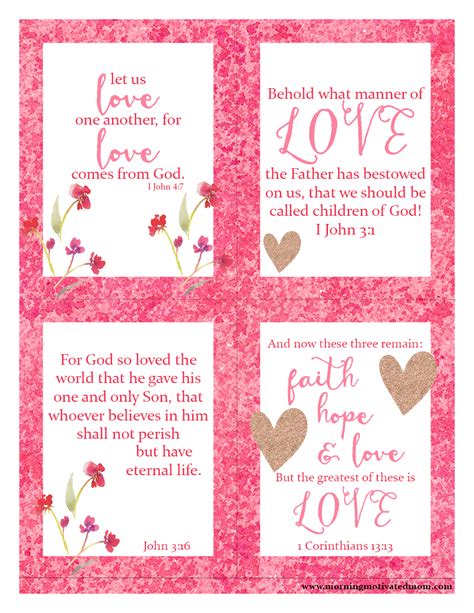 let us
love
one another, for
love
comes from God.
I John 4:7
Behold what manner of
LOVE
the Father has bestowed
on us, that we should be
called children of God!
I John 3:1
For God so loved the
world that he gave his
one and only Son, that
whoever believes in him
shall not perish
but have
eternal life.
John 3:16
And now these three remain:
faith
hope
& love
But the greatest of these is
LOVE
1 Corinthians 13:13
www.morningmotivatedmom.com